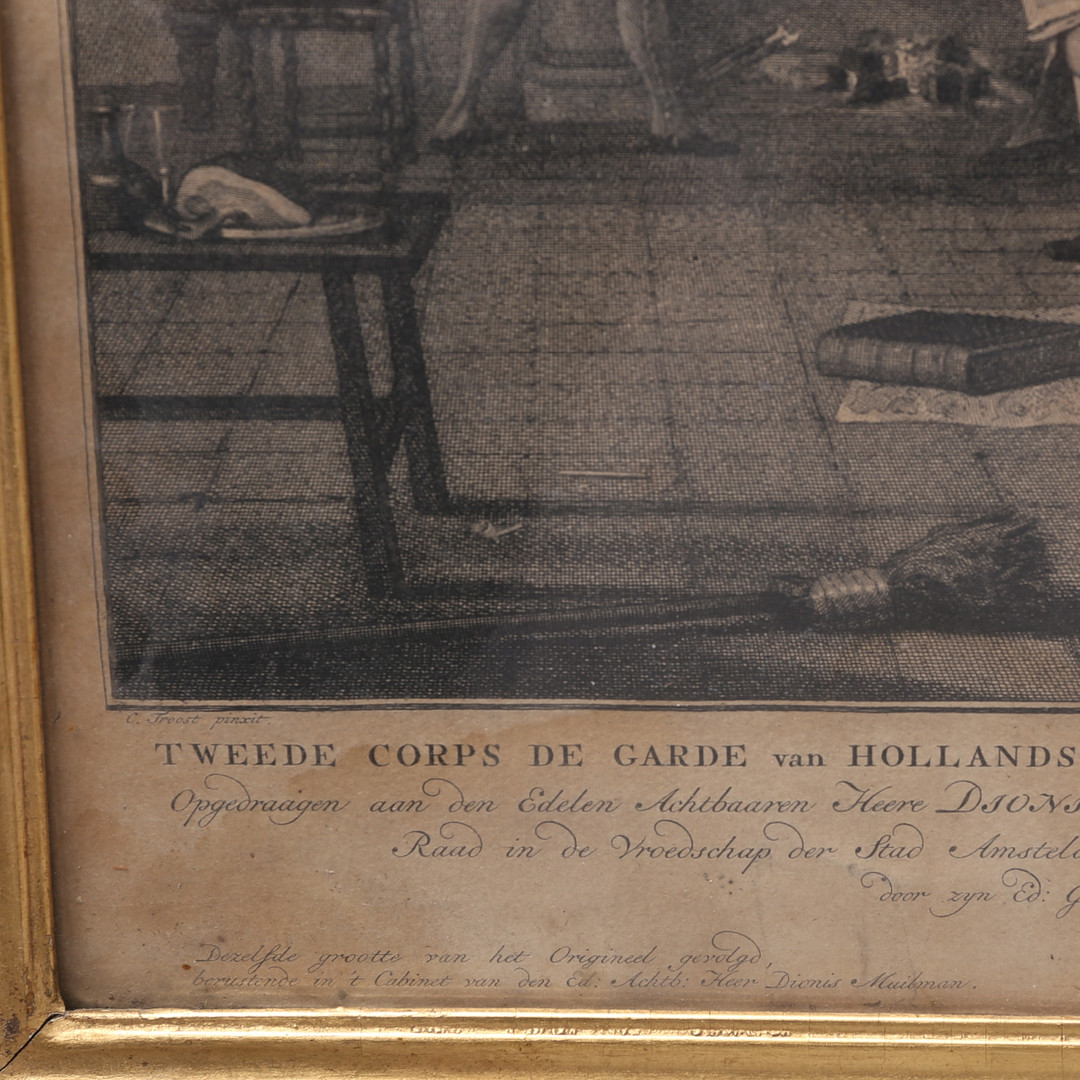 C. Troost pinxit.
TWEEDE CORPS DE GARDE van HOLLANDS
Opgedraagen aan den Edelen Achtbaaren Heere DIONI
Raad in de Vroedschap der Stad Amstel
door zyn Ed: G
Dezelfde grootte van het Origineel gevolgd,
berustende in 't Cabinet van den Ed: Achtb: Heer Dionis Muilman.